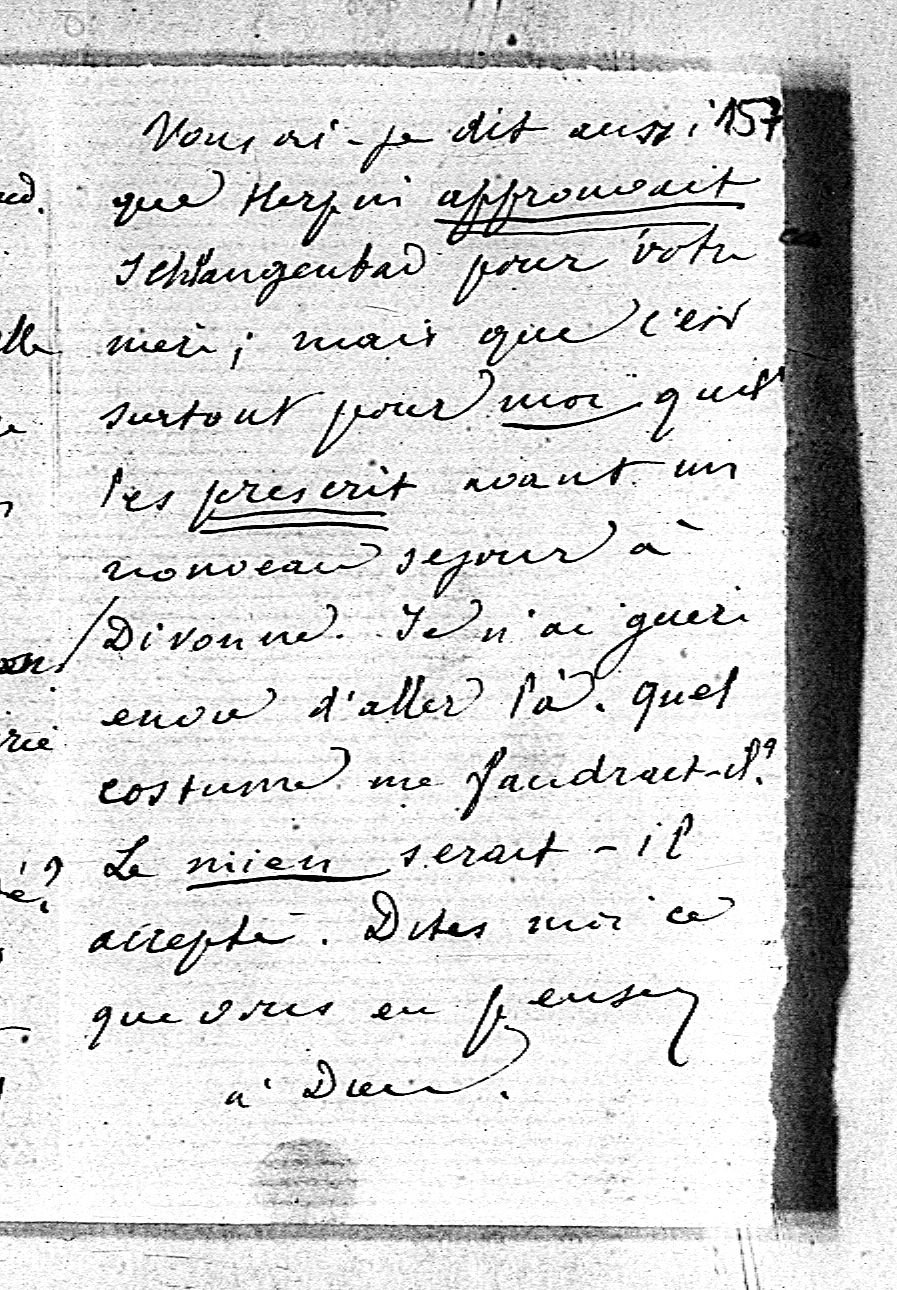 Vous ai-je dit aussi 157
que Herpin approuvait
Schlangenbad pour votre
mère ; mais que c'est
surtout pour moi qu'il
les prescrit avant un
nouveau sejour à
Divonne. Je n'ai guere
envie d'aller là. quel
costume me faudrait-il ?
Le mien serait-il
accepté. Dites moi ce
que vous en pensez
à Dieu.